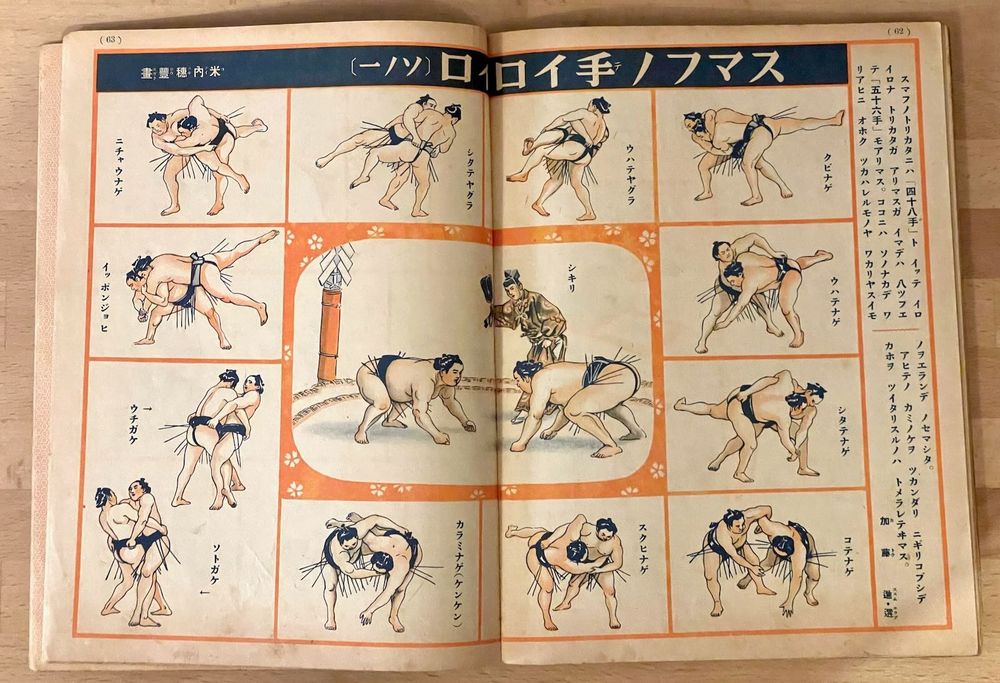 (62)
(63)
スマフノ手イロイロ(ソノ一)
米內穗豐畫
スマフノトリカタニハ「四十八手」ト イッテ イロ
イロナ トリカタガ アリマスガ イマデハ 八ツフエ
テ「五十六手」モアリマス。ココニハ ソノナカデ ワ
リアヒニ オホク ツカハレルモノヤ ワカリヤスイモ
ノヲエランデ ノセマシタ。
アヒテノ カミノケヲ ツカンダリ ニギリコブシデ
カホヲ ツイタリスルノハ トメラレテヰマス。
加藤 進・選
クビナゲ
ウハテヤグラ
シタテヤグラ
ニチャウナゲ
ウハテナゲ
シキリ
イッポンジョヒ
シタテナゲ
ウチガケ
→
コテナゲ
スクヒナゲ
カラミナゲ(ケンケン)
ソトガケ
←